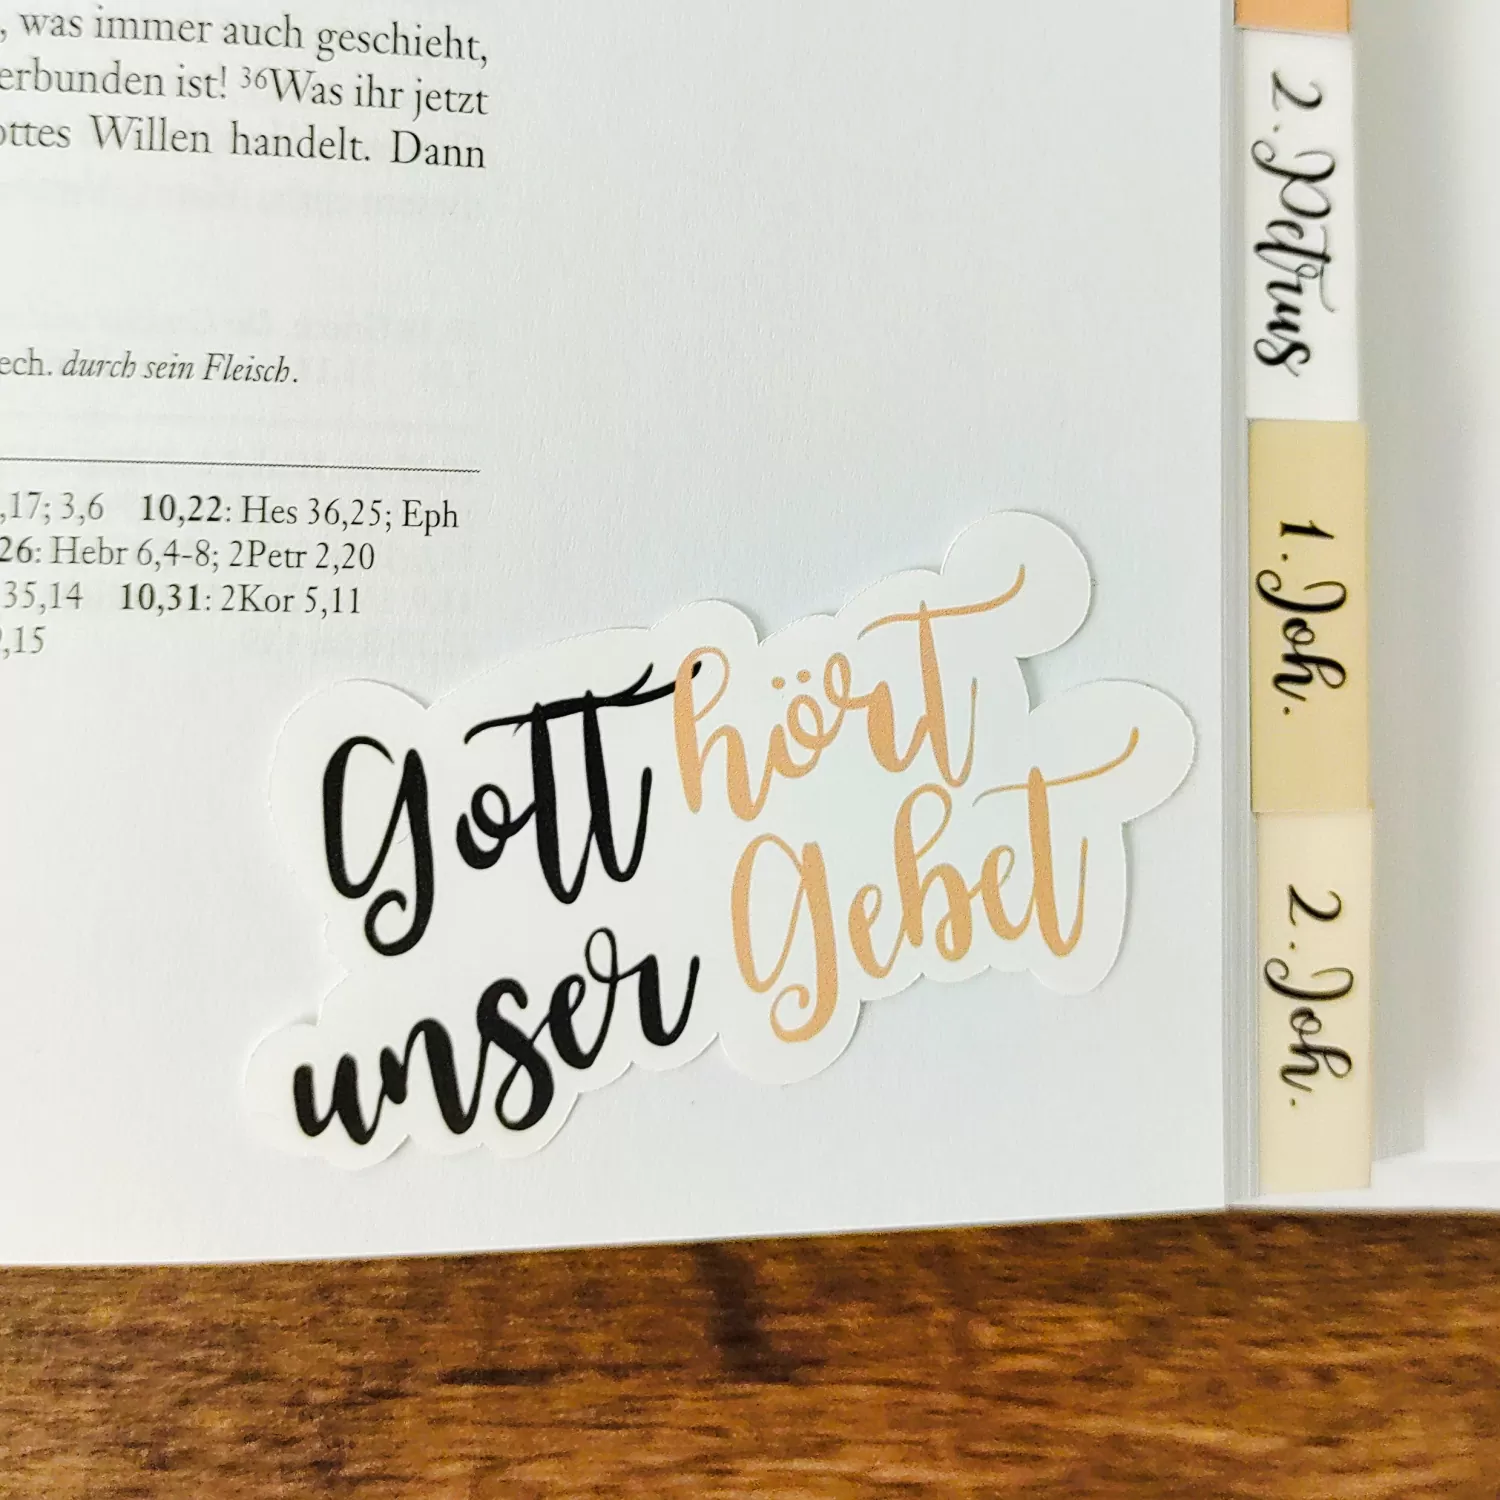 , was immer auch geschieht,
erbunden ist! ³⁶Was ihr jetzt
ottes Willen handelt. Dann
ech. durch sein Fleisch.
,17; 3,6 10,22: Hes 36,25; Eph
26: Hebr 6,4-8; 2Petr 2,20
35,14 10,31: 2Kor 5,11
,15
Gott hört
unser Gebet
2. Petrus
1. Joh.
2. Joh.